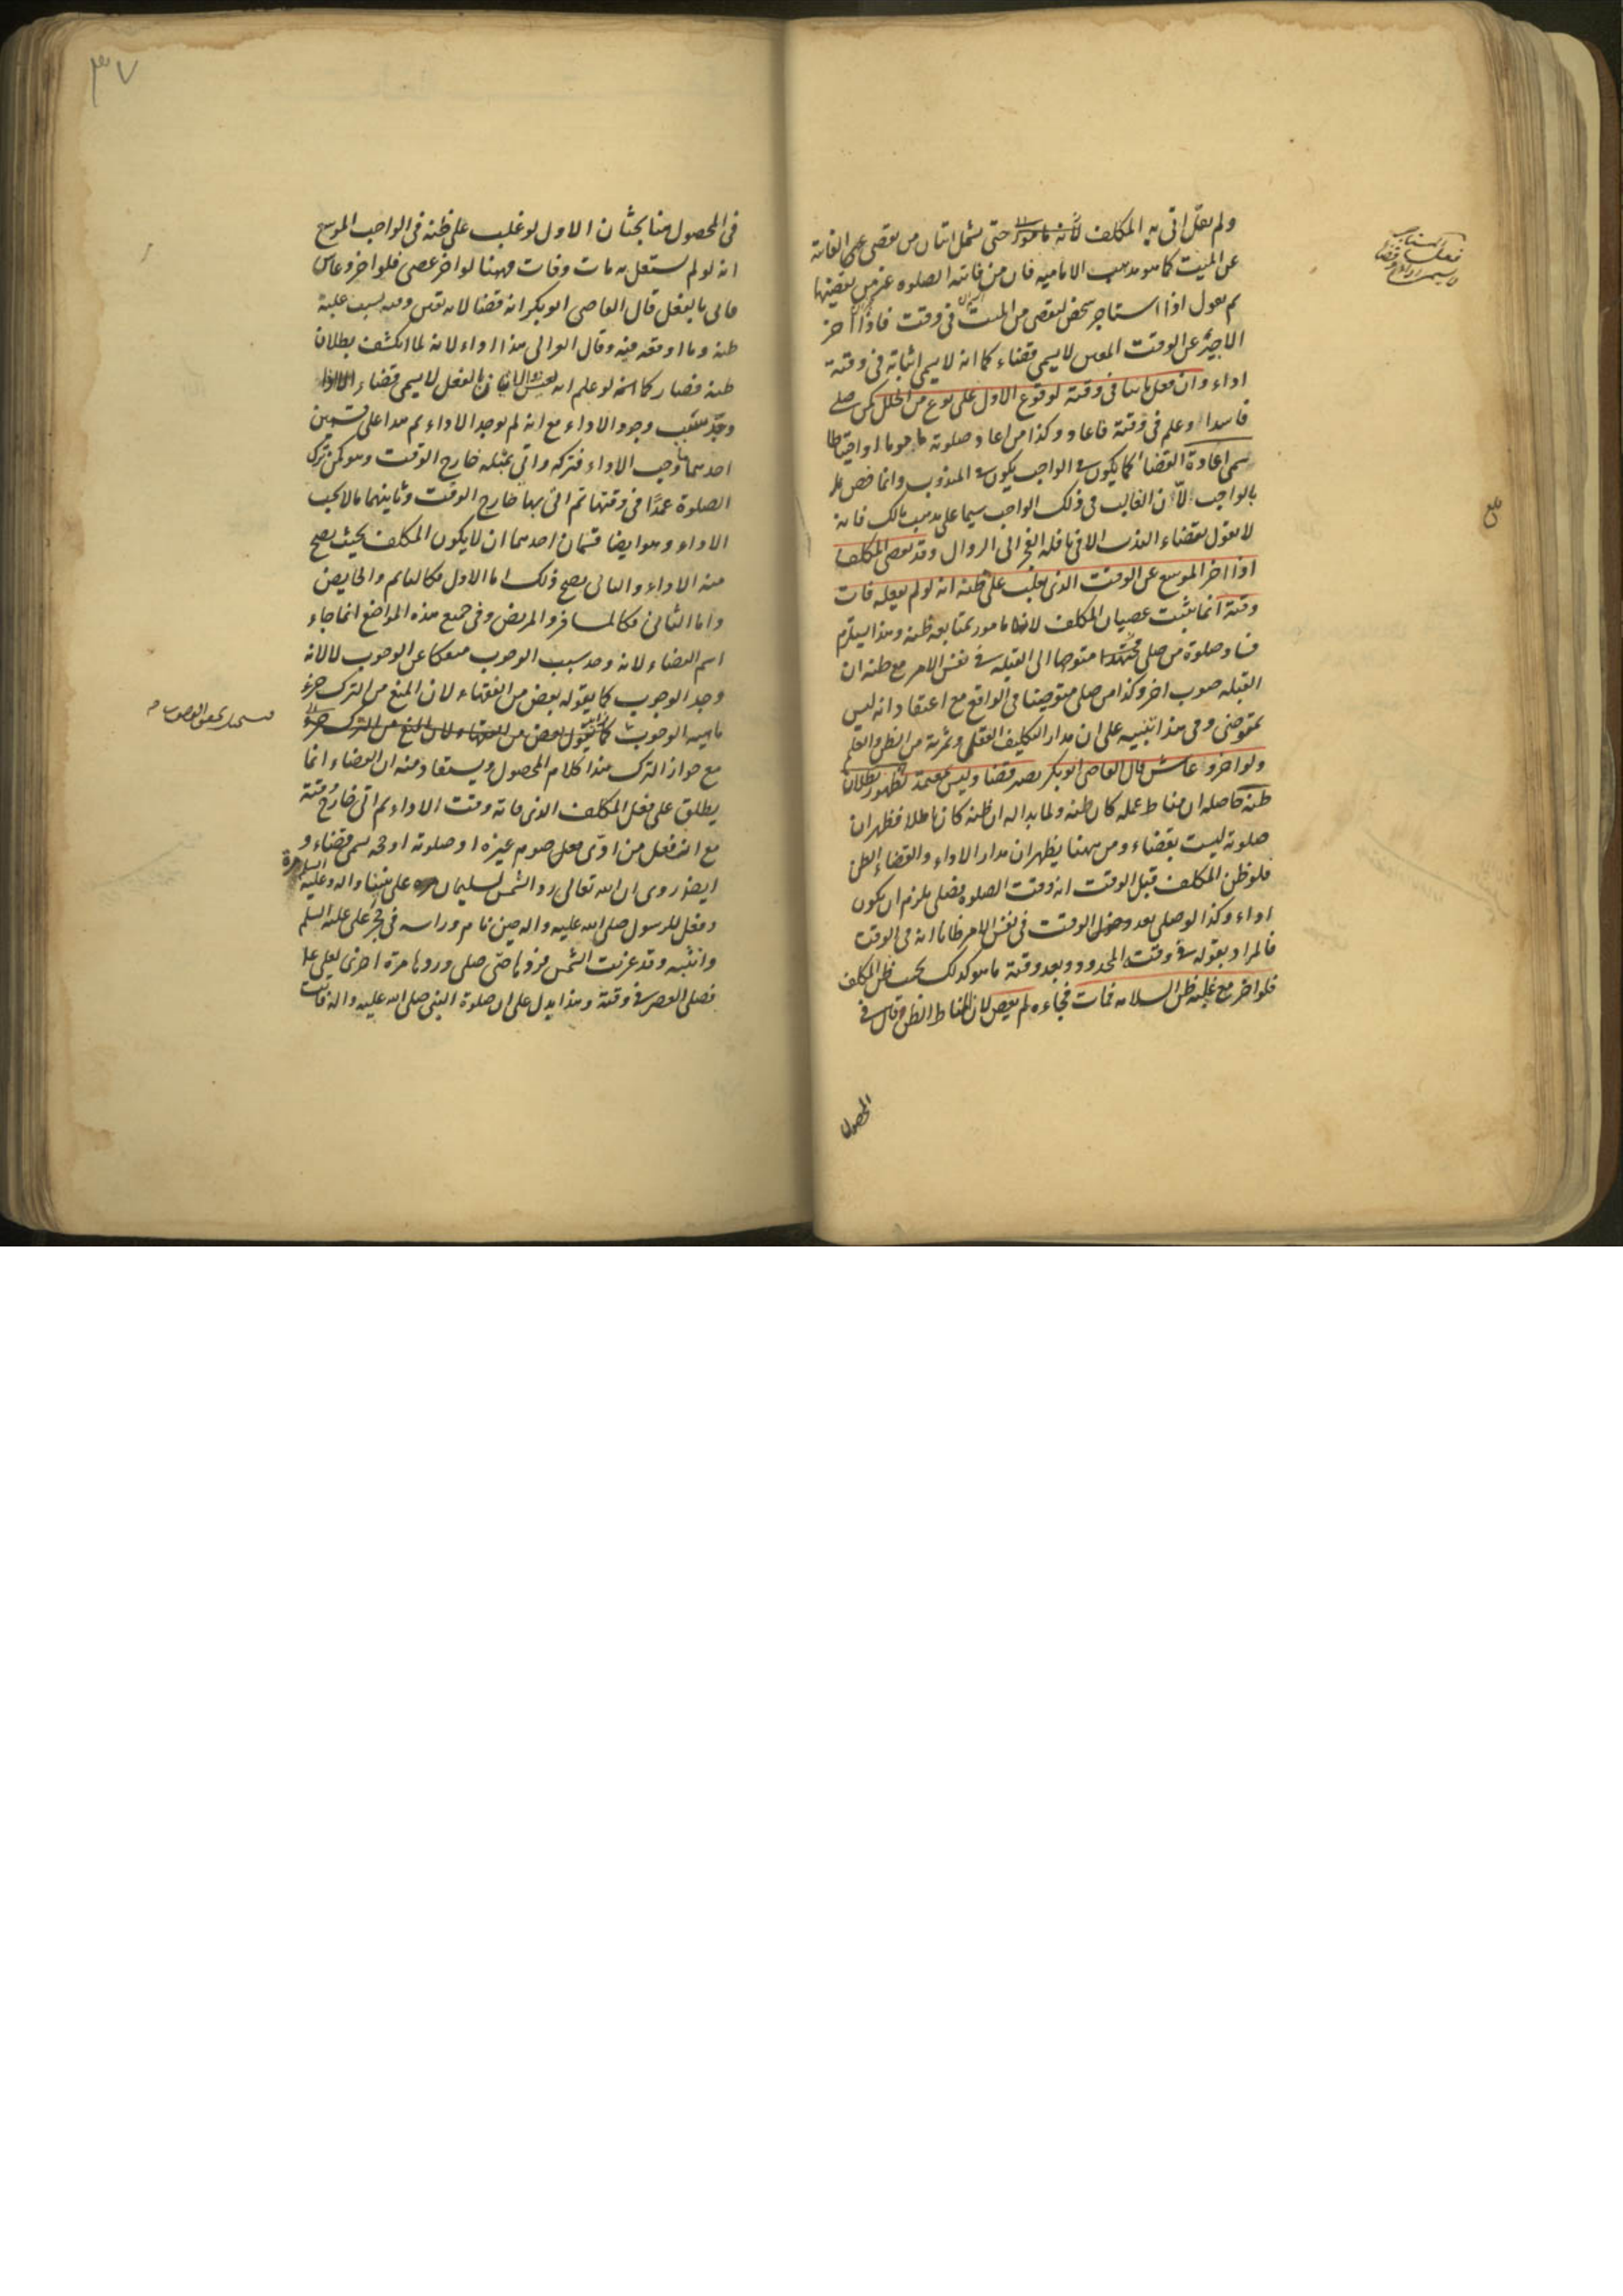 ولم يقل اتى به المكلف لانه مامور حتى يشمل اتيان من يقضى الفائتة
عن الميت كما هو مذهب الامامية فان من فاتته الصلوة غير من يقضيها
ثم نقول اذا استاجر شخص ليقضى من الميت فى وقت فاذا اخر
الاجير عن الوقت المعين لا يسمى قضاء كما انه لا يسمى اتيانه فى وقته
اداء وان فعل ثانيا فى وقته لوقوع الاول على نوع من الخلل كمن صلى
فاسدا وعلم فى وقته فاعاد وكذا من اعاد صلوته احتياطا
سمى اعادة القضاء كما يكون فى الواجب يكون فى المندوب وانما خص
بالواجب لان الغالب فى ذلك الواجب سيما على مذهب مالك فانه
لا يقول بقضاء الندب الا فى نافلة الفجر الى الزوال وقد يعصى المكلف
اذا اخر الموسع عن الوقت الذى يغلب على ظنه انه لو لم يفعله فات
وقته انما يثبت عصيان المكلف لانه مامور بمتابعة ظنه وهذا يستلزم
فساد صلوة من صلى مجتهدا متوجها الى القبلة فى نفس الامر مع ظنه ان
القبلة صوب اخر وكذا من صلى متوضيا فى الواقع مع اعتقاد انه ليس
بمتوضى وفى هذا تنبيه على ان مدار التكليف العقلى وثمرته من الظن والعلم
ولو اخر وعاش قال القاضى ابوبكر يصير قضا وليس بمعتمد لظهور بطلان
ظنه حاصله ان مناط عمله كان ظنه ولما بدا له ان ظنه كان باطلا فظهر ان
صلوته ليست بقضاء ومن ههنا يظهر ان مدار الاداء والقضاء الظن
فلو ظن المكلف قبل الوقت انه وقت الصلوة فصلى يلزم ان يكون
اداء وكذا لو صلى بعد دخول الوقت فى نفس الامر ظانا انه فى الوقت
فالمراد بقوله فى وقته المحدود وبعد وقته ما هو كذلك بحسب ظن المكلف
فلو اخر مع غلبة ظن السلامة فمات فجاءة لم يعص لان المناط الظن وقال فى
المحصول
٣٧
فى المحصول هنا بحثان الاول لو غلب على ظنه فى الواجب الموسع
انه لو لم يشتغل به مات وفات وههنا لو اخر عصى فلو اخر وعاش
فاتى بالفعل قال القاضى ابوبكر انه قضا لانه تعين وقته بسبب غلبة
ظنه وما اوقعه فيه وقال الغزالى هذا اداء لانه لما انكشف بطلان
ظنه فصار كما انه لو علم انه يعيش الثانى ان الفعل لا يسمى قضاء الا اذا
وجد سبب وجود الاداء مع انه لم يوجد الاداء ثم هذا على قسمين
احدهما وجب الاداء فتركه واتى بمثله خارج الوقت وهو كمن ترك
الصلوة عمدا فى وقتها ثم اتى بها خارج الوقت وثانيهما ما لا يجب
الاداء وهو ايضا قسمان احدهما ان لا يكون المكلف بحيث يصح
منه الاداء والثانى يصح ذلك اما الاول فكالنايم والحايض
واما الثانى فكالمسافر والمريض وفى جميع هذه المواضع انما جاء
اسم القضاء لانه وجد سبب الوجوب منفكا عن الوجوب لا لانه
وجد الوجوب كما يقوله بعض من الفقهاء لان المنع من الترك جزء
ماهية الوجوب كما يقول بعض من الفقهاء لان المنع من الترك جزء
مع جواز الترك هذا كلام المحصول ويستفاد منه ان القضاء انما
يطلق على فعل المكلف الذى فاته وقت الاداء ثم اتى خارج وقته
مع ان فعل من ادى صوم غيره او صلوته او حجه يسمى قضاء و
ايضا روى ان الله تعالى رد الشمس لسليمان على نبينا واله وعليه السلم مرة
وفعل للرسول صلى الله عليه واله حين نام وراسه فى حجر على عليه السلم
وانتبه وقد غربت الشمس فردها حتى صلى وردها مرة اخرى لعلى
فصلى العصر فى وقته وهذا يدل على ان صلوة النبى صلى الله عليه واله فاتت